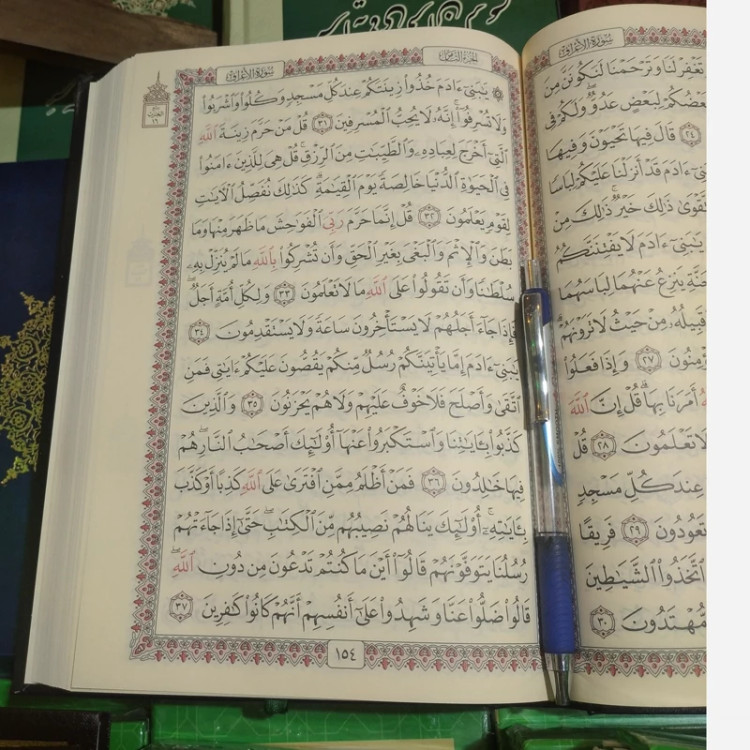 سُورَةُ الأَعْرَافِ
تَغْفِرْ لَنَا وَتَرْحَمْنَا لَنَكُونَنَّ مِنَ
لِبَعْضٍ عَدُوٌّ وَلَكُمْ فِي
٢٤ قَالَ فِيهَا تَحْيَوْنَ وَفِيهَا
ءَادَمَ قَدْ أَنزَلْنَا عَلَيْكُمْ لِبَاسًا
ذَٰلِكَ خَيْرٌ ذَٰلِكَ مِنْ
يَٰبَنِيٓ ءَادَمَ لَا يَفْتِنَنَّكُمُ
يَنزِعُ عَنْهُمَا لِبَاسَهُمَا
وَقَبِيلُهُۥ مِنْ حَيْثُ لَا تَرَوْنَهُمْ
٢٧ وَإِذَا فَعَلُوا۟
أَمَرَنَا بِهَا قُلْ إِنَّ ٱللَّهَ
لَا تَعْلَمُونَ ٢٨ قُلْ
عِندَ كُلِّ مَسْجِدٍ
تَعُودُونَ ٢٩ فَرِيقًا
ٱتَّخَذُوا۟ ٱلشَّيَٰطِينَ
مُّهْتَدُونَ ٣٠
الجُزْءُ الثَّامِنُ
سُورَةُ الأَعْرَافِ
يَٰبَنِيٓ ءَادَمَ خُذُوا۟ زِينَتَكُمْ عِندَ كُلِّ مَسْجِدٍ وَكُلُوا۟ وَٱشْرَبُوا۟
وَلَا تُسْرِفُوٓا۟ إِنَّهُۥ لَا يُحِبُّ ٱلْمُسْرِفِينَ ٣١ قُلْ مَنْ حَرَّمَ زِينَةَ ٱللَّهِ
ٱلَّتِيٓ أَخْرَجَ لِعِبَادِهِۦ وَٱلطَّيِّبَٰتِ مِنَ ٱلرِّزْقِ قُلْ هِيَ لِلَّذِينَ ءَامَنُوا۟
فِي ٱلْحَيَوٰةِ ٱلدُّنْيَا خَالِصَةً يَوْمَ ٱلْقِيَٰمَةِ كَذَٰلِكَ نُفَصِّلُ ٱلْءَايَٰتِ
لِقَوْمٍ يَعْلَمُونَ ٣٢ قُلْ إِنَّمَا حَرَّمَ رَبِّيَ ٱلْفَوَٰحِشَ مَا ظَهَرَ مِنْهَا وَمَا
بَطَنَ وَٱلْإِثْمَ وَٱلْبَغْيَ بِغَيْرِ ٱلْحَقِّ وَأَن تُشْرِكُوا۟ بِٱللَّهِ مَا لَمْ يُنَزِّلْ بِهِۦ
سُلْطَٰنًا وَأَن تَقُولُوا۟ عَلَى ٱللَّهِ مَا لَا تَعْلَمُونَ ٣٣ وَلِكُلِّ أُمَّةٍ أَجَلٌ
فَإِذَا جَآءَ أَجَلُهُمْ لَا يَسْتَأْخِرُونَ سَاعَةً وَلَا يَسْتَقْدِمُونَ ٣٤
يَٰبَنِيٓ ءَادَمَ إِمَّا يَأْتِيَنَّكُمْ رُسُلٌ مِّنكُمْ يَقُصُّونَ عَلَيْكُمْ ءَايَٰتِي فَمَنِ
ٱتَّقَىٰ وَأَصْلَحَ فَلَا خَوْفٌ عَلَيْهِمْ وَلَا هُمْ يَحْزَنُونَ ٣٥ وَٱلَّذِينَ
كَذَّبُوا۟ بِـَٔايَٰتِنَا وَٱسْتَكْبَرُوا۟ عَنْهَآ أُو۟لَٰٓئِكَ أَصْحَٰبُ ٱلنَّارِ هُمْ
فِيهَا خَٰلِدُونَ ٣٦ فَمَنْ أَظْلَمُ مِمَّنِ ٱفْتَرَىٰ عَلَى ٱللَّهِ كَذِبًا أَوْ كَذَّبَ
بِـَٔايَٰتِهِۦٓ أُو۟لَٰٓئِكَ يَنَالُهُمْ نَصِيبُهُم مِّنَ ٱلْكِتَٰبِ حَتَّىٰٓ إِذَا جَآءَتْهُمْ
رُسُلُنَا يَتَوَفَّوْنَهُمْ قَالُوٓا۟ أَيْنَ مَا كُنتُمْ تَدْعُونَ مِن دُونِ ٱللَّهِ
قَالُوا۟ ضَلُّوا۟ عَنَّا وَشَهِدُوا۟ عَلَىٰٓ أَنفُسِهِمْ أَنَّهُمْ كَانُوا۟ كَٰفِرِينَ ٣٧
١٥٤